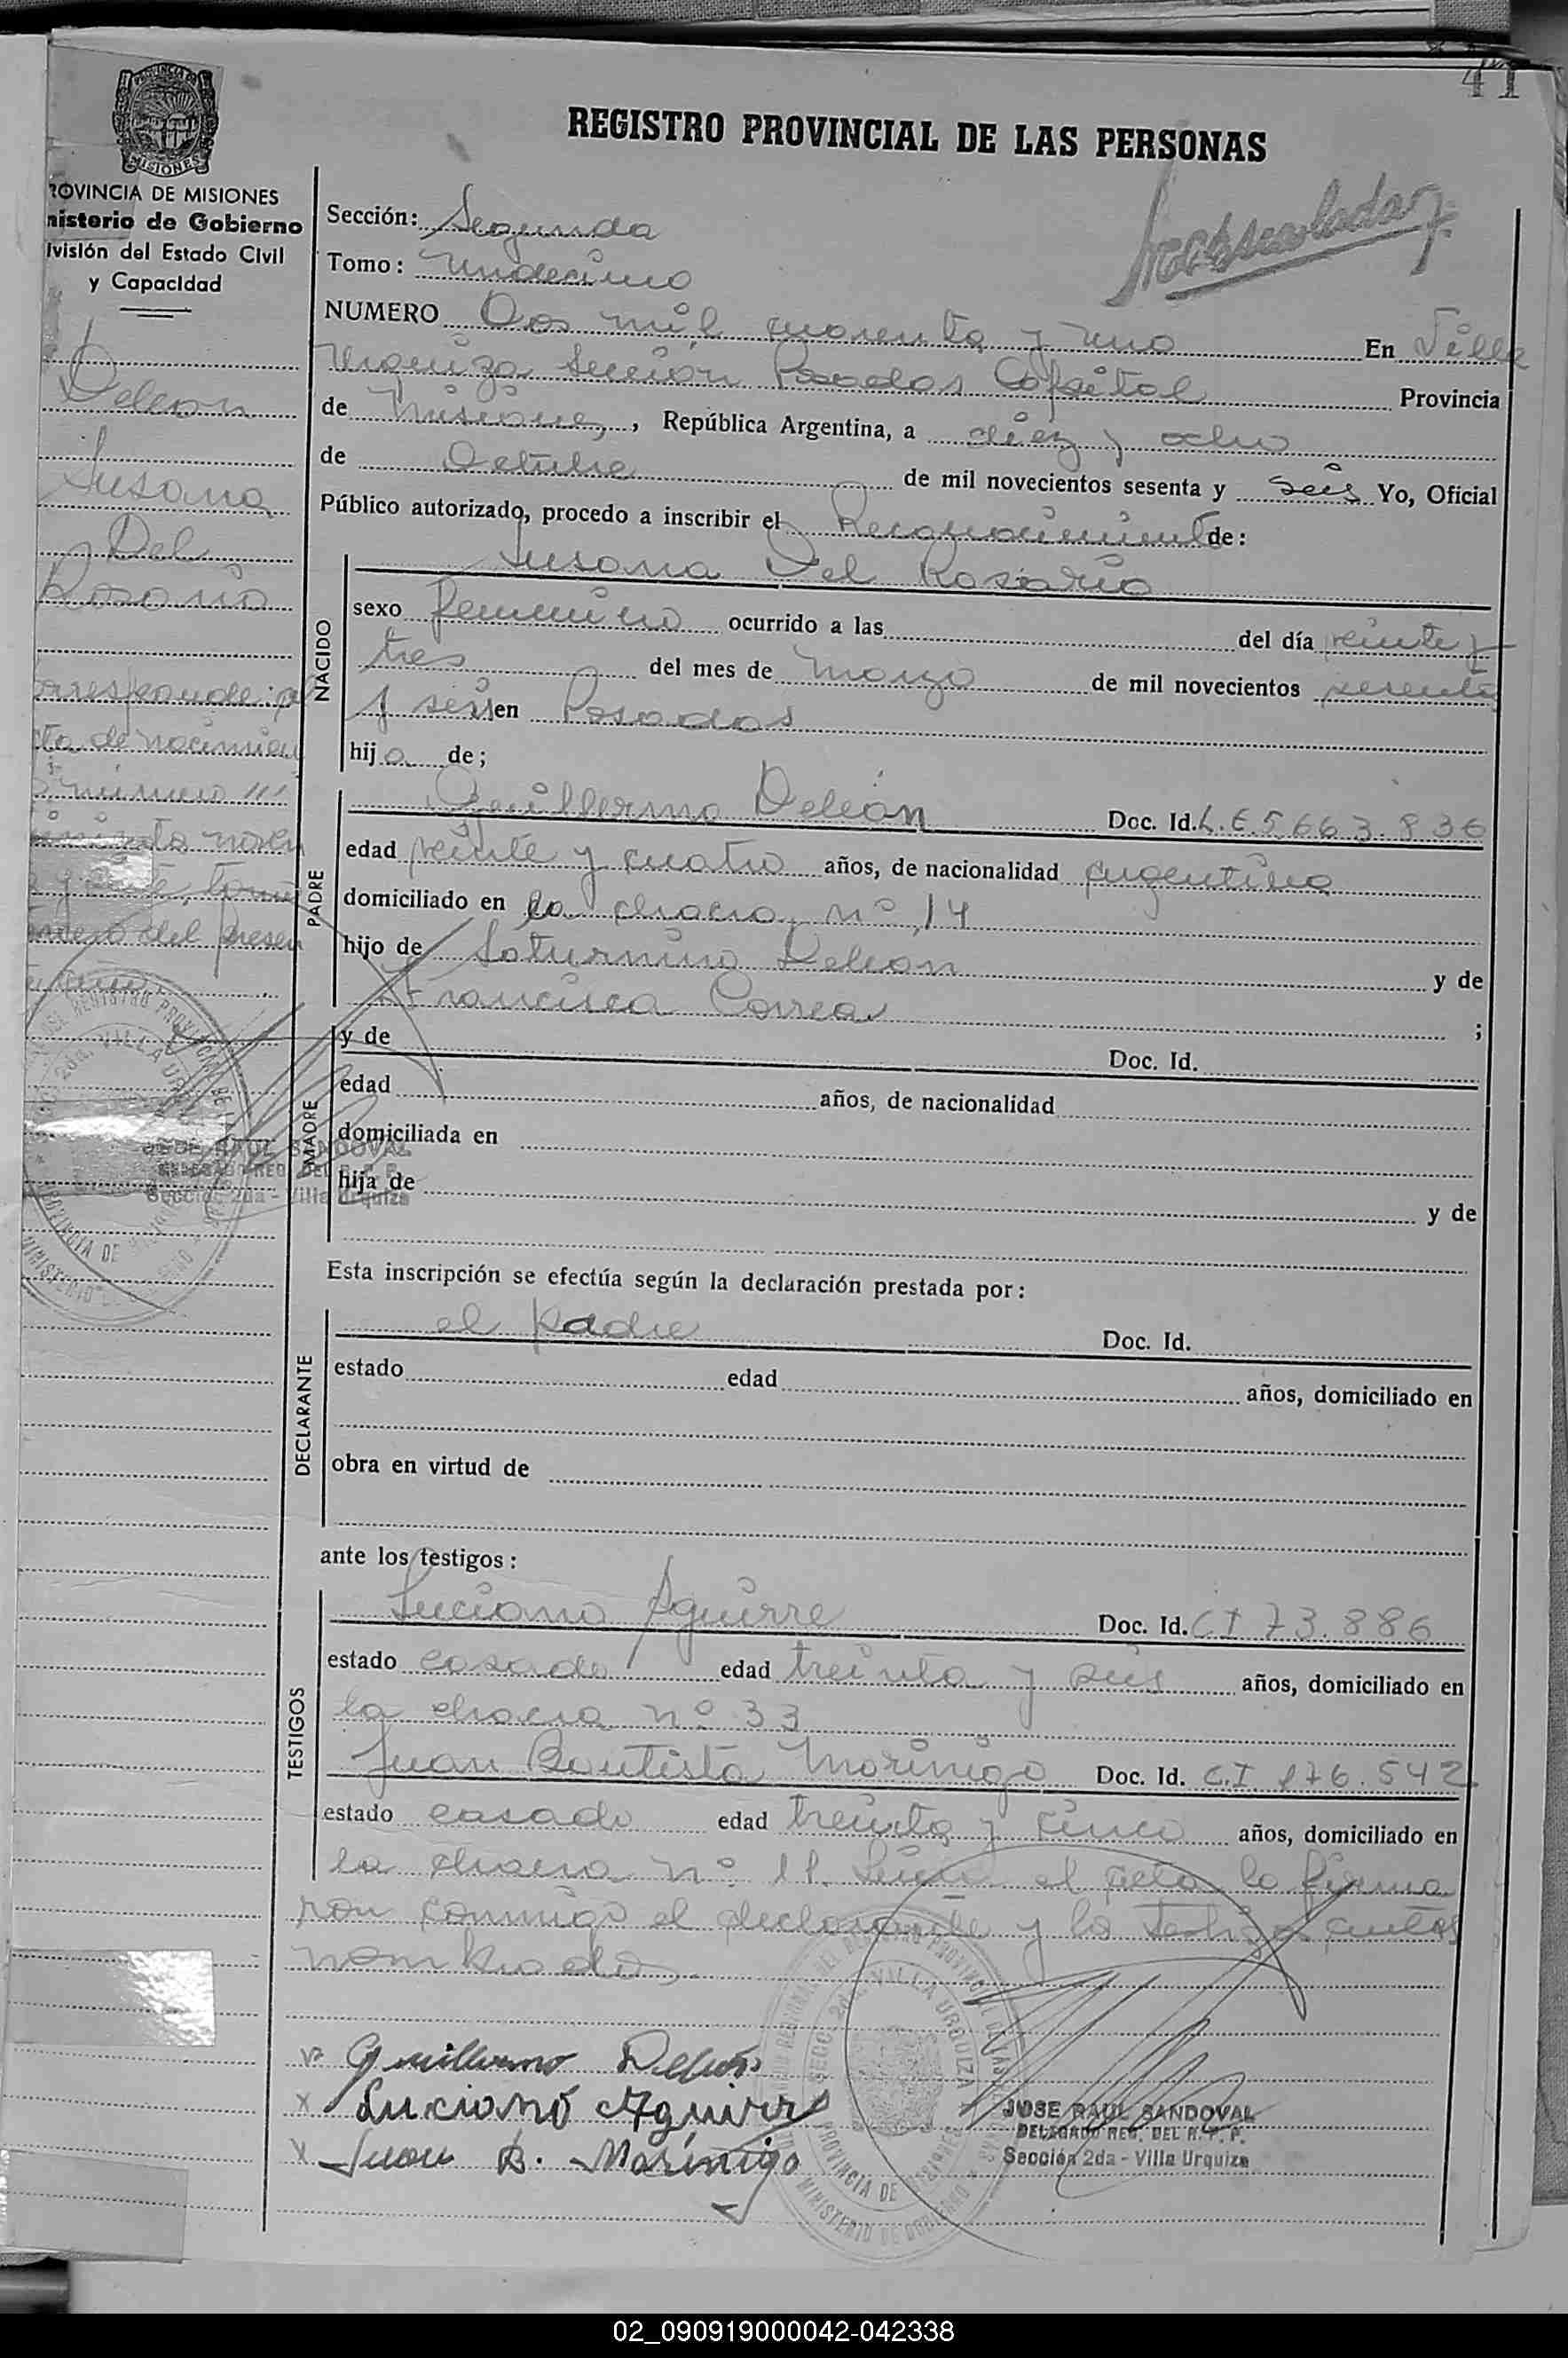 41
REGISTRO PROVINCIAL DE LAS PERSONAS
MISIONES
ROVINCIA DE MISIONES
nisterio de Gobierno
ivisión del Estado Civil
y Capacidad
Deleon
Susana
Del
Rosario
orresponde: a
cta de nacimien
número
noven
tomo
del presen
Sección: Segunda
Tomo: Undecimo
NUMERO Dos mil cuarenta y uno En Villa
Urquiza Sección Posadas Capital Provincia
de Misiones, República Argentina, a diez y ocho
de Octubre de mil novecientos sesenta y seis Yo, Oficial
Público autorizado, procedo a inscribir el Reconocimiento de:
NACIDO
Susana Del Rosario
sexo femenino ocurrido a las del día veinte y
tres del mes de marzo de mil novecientos sesenta
y seis en Posadas
hija de;
PADRE
Guillermo Deleón Doc. Id. L.E. 5.663.836
edad veinte y cuatro años, de nacionalidad argentina
domiciliado en la chacra nº 14
hijo de Saturnino Deleon y de
Francisca Correa ;
MADRE
y de Doc. Id.
edad años, de nacionalidad
domiciliada en
hija de y de
JOSE RAUL SANDOVAL
DELEGADO REG. DEL R. P. P.
Sección 2da - Villa Urquiza
Esta inscripción se efectúa según la declaración prestada por:
DECLARANTE
el padre Doc. Id.
estado edad años, domiciliado en
obra en virtud de
ante los testigos:
TESTIGOS
Luciano Aguirre Doc. Id. CI 73.886
estado casado edad treinta y seis años, domiciliado en
la chacra nº 33
Juan Bautista Morinigo Doc. Id. C.I 176.542
estado casado edad treinta y cinco años, domiciliado en
la chacra nº 11. el acta la firma
ron conmigo el declarante y los testigos antes
nombrados.
Guillermo Deleon
x Luciano Aguirre
x Juan B. Morinigo
JOSE RAUL SANDOVAL
DELEGADO REG. DEL R. P. P.
Sección 2da - Villa Urquiza
02_090919000042-042338